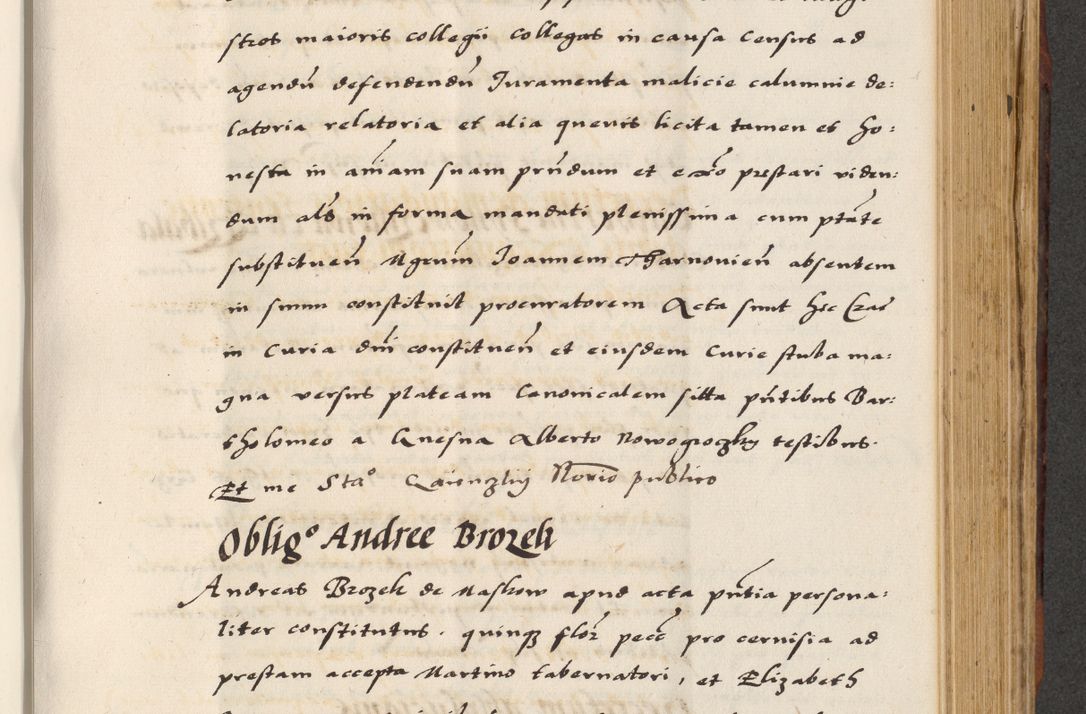 stros maioris collegii collegas in causa census ad
agendū defendendū Iuramenta malicie calumnie de:
latoria relatoria et alia quevis licita tamen et ho:
nesta in aīam suam prn̄dum et prestari viden:
dum als̄ in forma mandati plenissima cum ptāte
substituen̄ Mgrum̄ Ioannem Tharnovien̄ absentem
in suum constituit procuratorem Acta sunt hec Crac̄
in Curia dnī constituen̄ et eiusdem Curie stuba ma:
gna versus plateam Canonicalem sitta pn̄tibus Bar:
tholomeo a Quesna Alberto Nowogroczky testibus.
Et me Stao Norio publico
Obligo Andree Brozek
Andreas Brozek de Maskow apud acta pn̄tia persona:
liter constitutus. quinqz flor̄ pecc̄ pro cervisia ad
prestam accepta Martino tabernatori, et Elizabeth